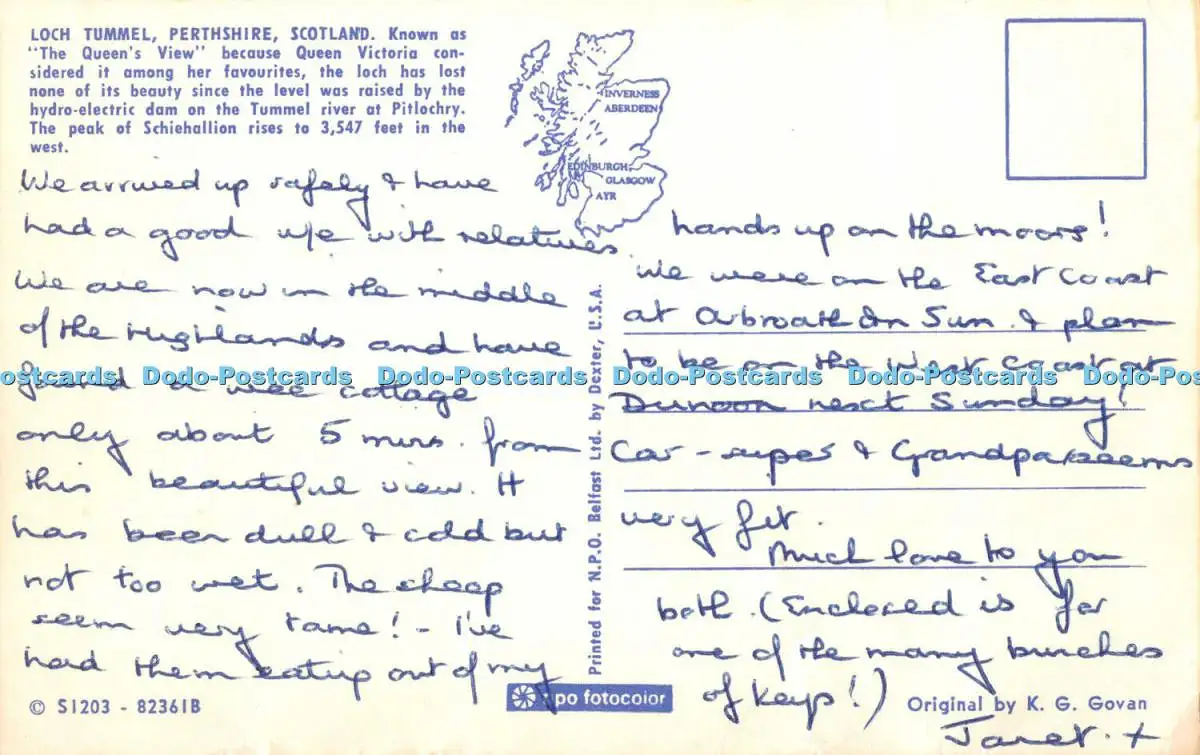 LOCH TUMMEL, PERTHSHIRE, SCOTLAND. Known as
"The Queen's View" because Queen Victoria con-
sidered it among her favourites, the loch has lost
none of its beauty since the level was raised by the
hydro-electric dam on the Tummel river at Pitlochry.
The peak of Schiehallion rises to 3,547 feet in the
west.
INVERNESS
ABERDEEN
EDINBURGH
GLASGOW
AYR
We arrived up safely & have
had a good with relatives
We are now in the middle
of the Highlands and have
found a wee cottage
only about 5 mins. from
this beautiful view. It
has been dull & cold but
not too wet. The sheep
seem very tame! - I've
had them eating out of my
hands up on the moors!
We were on the East Coast
at Arbroath on Sun. & plan
to be on the West Coast at
Dunoon next Sunday!
Car - super & Grandpa seems
very fit.
Much love to you
both. (Enclosed is for
one of the many bunches
of keys!)
Janet. x
Printed for N.P.O. Belfast Ltd. by Dexter, U.S.A.
Dodo-Postcards Dodo-Postcards Dodo-Postcards Dodo-Postcards
© S1203 - 82361B
npo fotocolor
Original by K. G. Govan